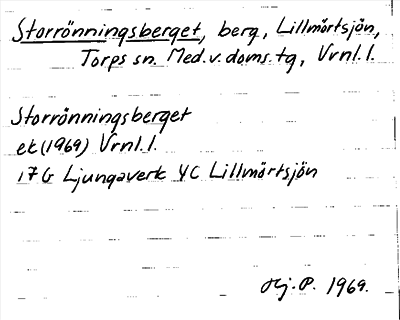 Storrönningsberget, berg, Lillmörtsjön,
Torps sn. Med.v.doms.tg, Vrnl.l.
Storrönningsberget
ek(1969) Vrnl.l.
17G Ljungaverk 4C Lillmörtsjön
Hj.P. 1969.